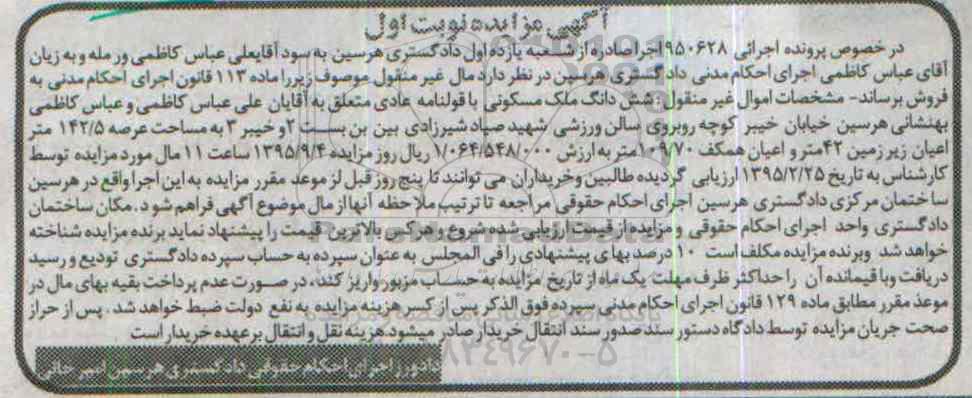 آگهی مزایده نوبت اول
در خصوص پرونده اجرائی ۹۵۰۶۲۸ اجرا صادره از شعبه یازده اول دادگستری هرسین به سود آقایعلی عباس کاظمی ور مله و به زیان
آقای عباس کاظمی اجرای احکام مدنی دادگستری هرسین در نظر دارد مال غیر منقول موصوف زیر را ماده ۱۱۳ قانون اجرای احکام مدنی به
فروش برساند- مشخصات اموال غیر منقول : شش دانگ ملک مسکونی با قولنامه عادی متعلق به آقایان علی عباس کاظمی و عباس کاظمی
بهنشانی هرسین خیابان خیبر کوچه روبروی سالن ورزشی شهید صیاد شیرزادی بین بن بست ۲ و خیبر ۳ به مساحت عرصه ۱۴۲/۵ متر
اعیان زیر زمین ۴۲ متر و اعیان همکف ۱۰۹/۷۰ متر به ارزش ۱/۰۶۴/۵۴۸/۰۰۰ ریال روز مزایده ۱۳۹۵/۹/۴ ساعت ۱۱ مال مورد مزایده توسط
کارشناس به تاریخ ۱۳۹۵/۲/۲۵ ارزیابی گردیده طالبین و خریداران می توانند تا پنج روز قبل از موعد مقرر مزایده به این اجرا واقع در هرسین
ساختمان مرکزی دادگستری هرسین اجرای احکام حقوقی مراجعه تا ترتیب ملاحظه آنها از مال موضوع آگهی فراهم شود . مکان ساختمان
دادگستری واحد اجرای احکام حقوقی و مزایده از قیمت ارزیابی شده شروع و هر کس بالاترین قیمت را پیشنهاد نماید برنده مزایده شناخته
خواهد شد وبرنده مزایده مکلف است ۱۰ درصد بهای پیشنهادی را فی المجلس به عنوان سپرده به حساب سپرده دادگستری تودیع و رسید
دریافت و باقیمانده آن را حداکثر ظرف مهلت یک ماه از تاریخ مزایده به حساب مزبور واریز کند، در صورت عدم پرداخت بقیه بهای مال در
موعد مقرر مطابق ماده ۱۲۹ قانون اجرای احکام مدنی سپرده فوق الذکر پس از کسر هزینه مزایده به نفع دولت ضبط خواهد شد . پس از احراز
صحت جریان مزایده توسط دادگاه دستور سند صدور سند انتقال خریدار صادر میشود.هزینه نقل و انتقال بر عهده خریدار است
دادورز اجرای احکام حقوقی دادگستری هرسین امیر خانی